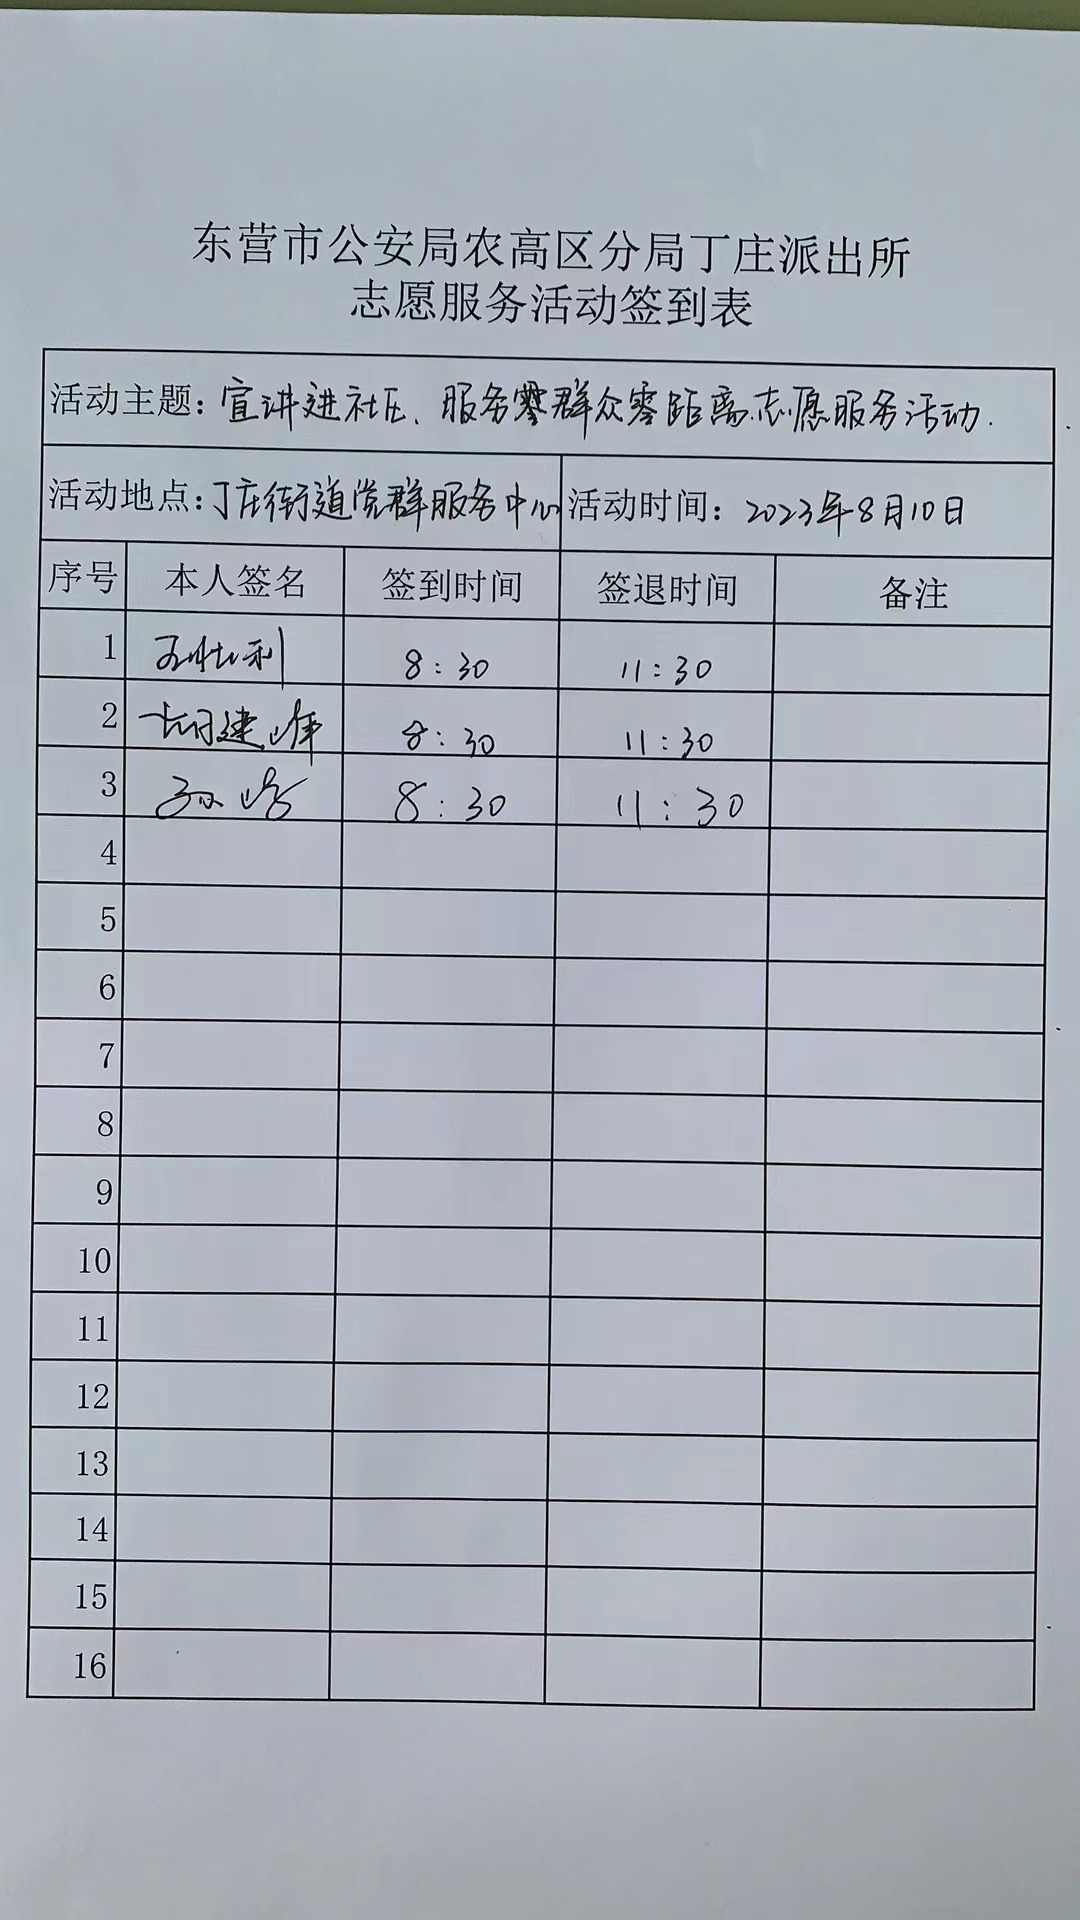 东营市公安局农高区分局丁庄派出所
志愿服务活动签到表
活动主题：宣讲进社区、服务零群众零距离志愿服务活动.
活动地点：丁庄街道党群服务中心 活动时间：2023年8月10日
序号 本人签名 签到时间 签退时间 备注
1 8:30 11:30
2 胡建峰 8:30 11:30
3 8:30 11:30
4
5
6
7
8
9
10
11
12
13
14
15
16